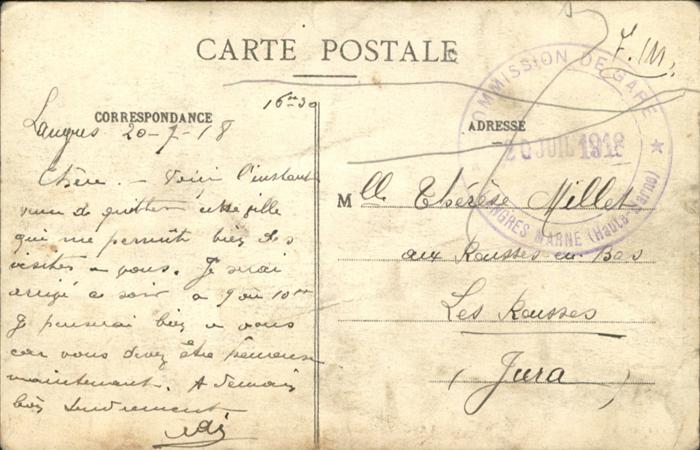 CARTE POSTALE
F.M.
CORRESPONDANCE
ADRESSE
16h30
Langres 20-7-18
Chère. - Voici l'instant
de quitter cette ville
qui me permit bien des
visites a vous. Je serai
arrivé ce soir a 9 ou 10h
Je penserai bien a vous
car vous devez être heureuse
maintenant. A demain
bien tendrement
Mlle Thérèse Millet
aux Rousses en Bas
Les Rousses
(Jura)
COMMISSION DE GARE
20 JUIL 1918
LANGRES MARNE (Haute-Marne)